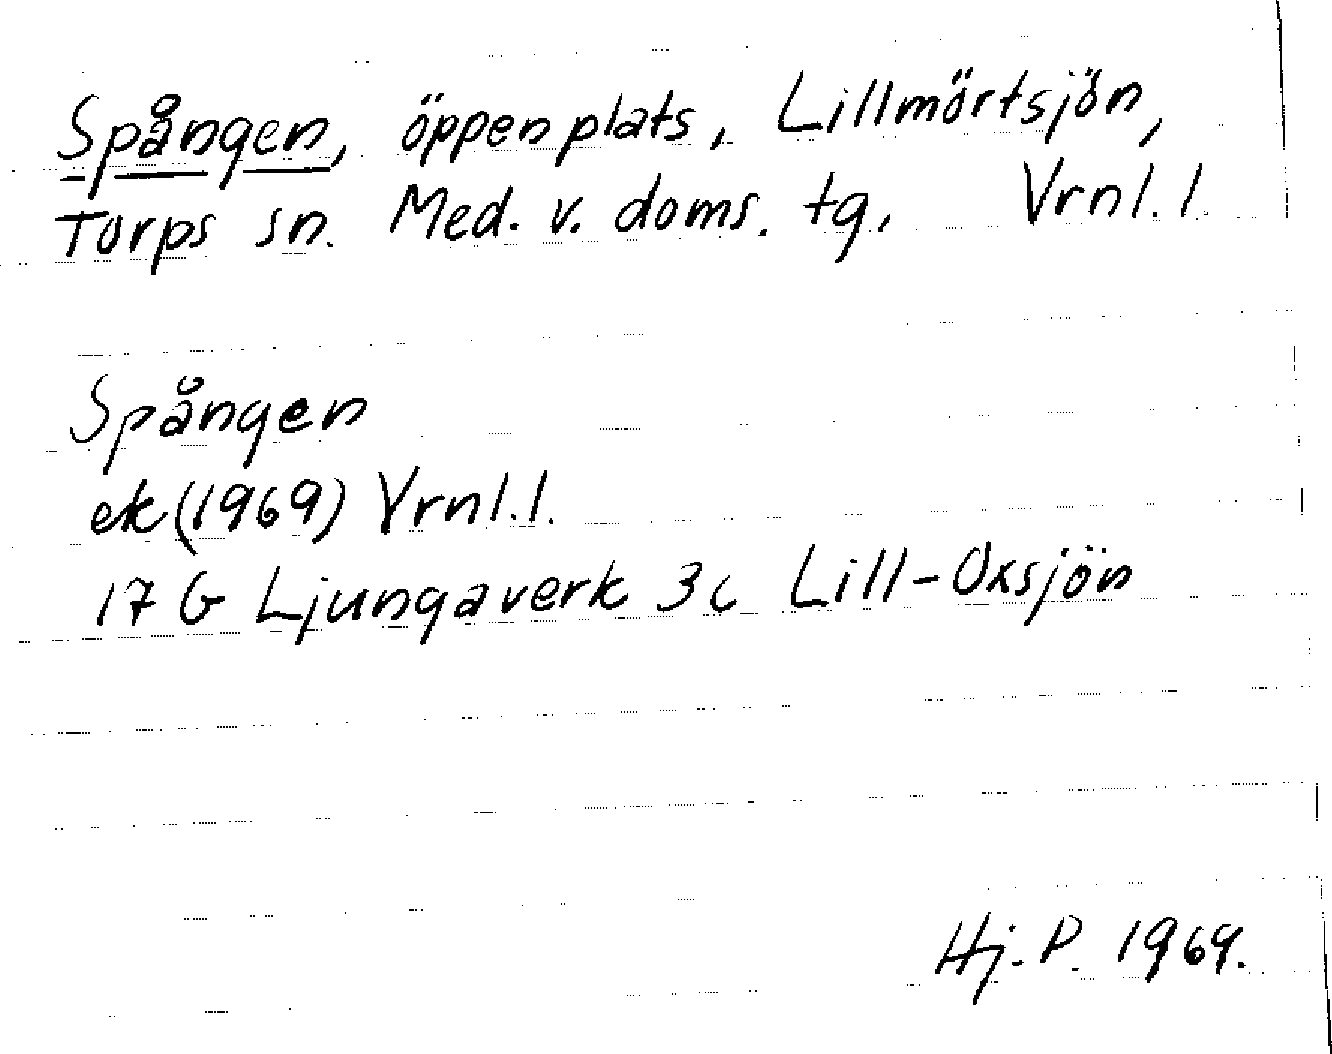 Spången, öppen plats, Lillmörtsjön,
Torps sn. Med. v. doms. tg, Vrnl. l.
Spången
ek (1969) Vrnl. l.
17 G Ljungaverk 3 c Lill-Oxsjön
Hj. P. 1969.